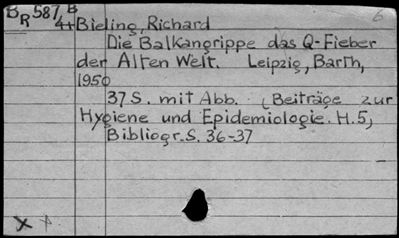 BR 587 B 6
44 Bieling, Richard
Die Balkangrippe das Q-Fieber
der Alten Welt. Leipzig, Barth,
1950
37 S. mit Abb. (Beiträge zur
Hygiene und Epidemiologie. H.5)
Bibliogr. S. 36-37
x